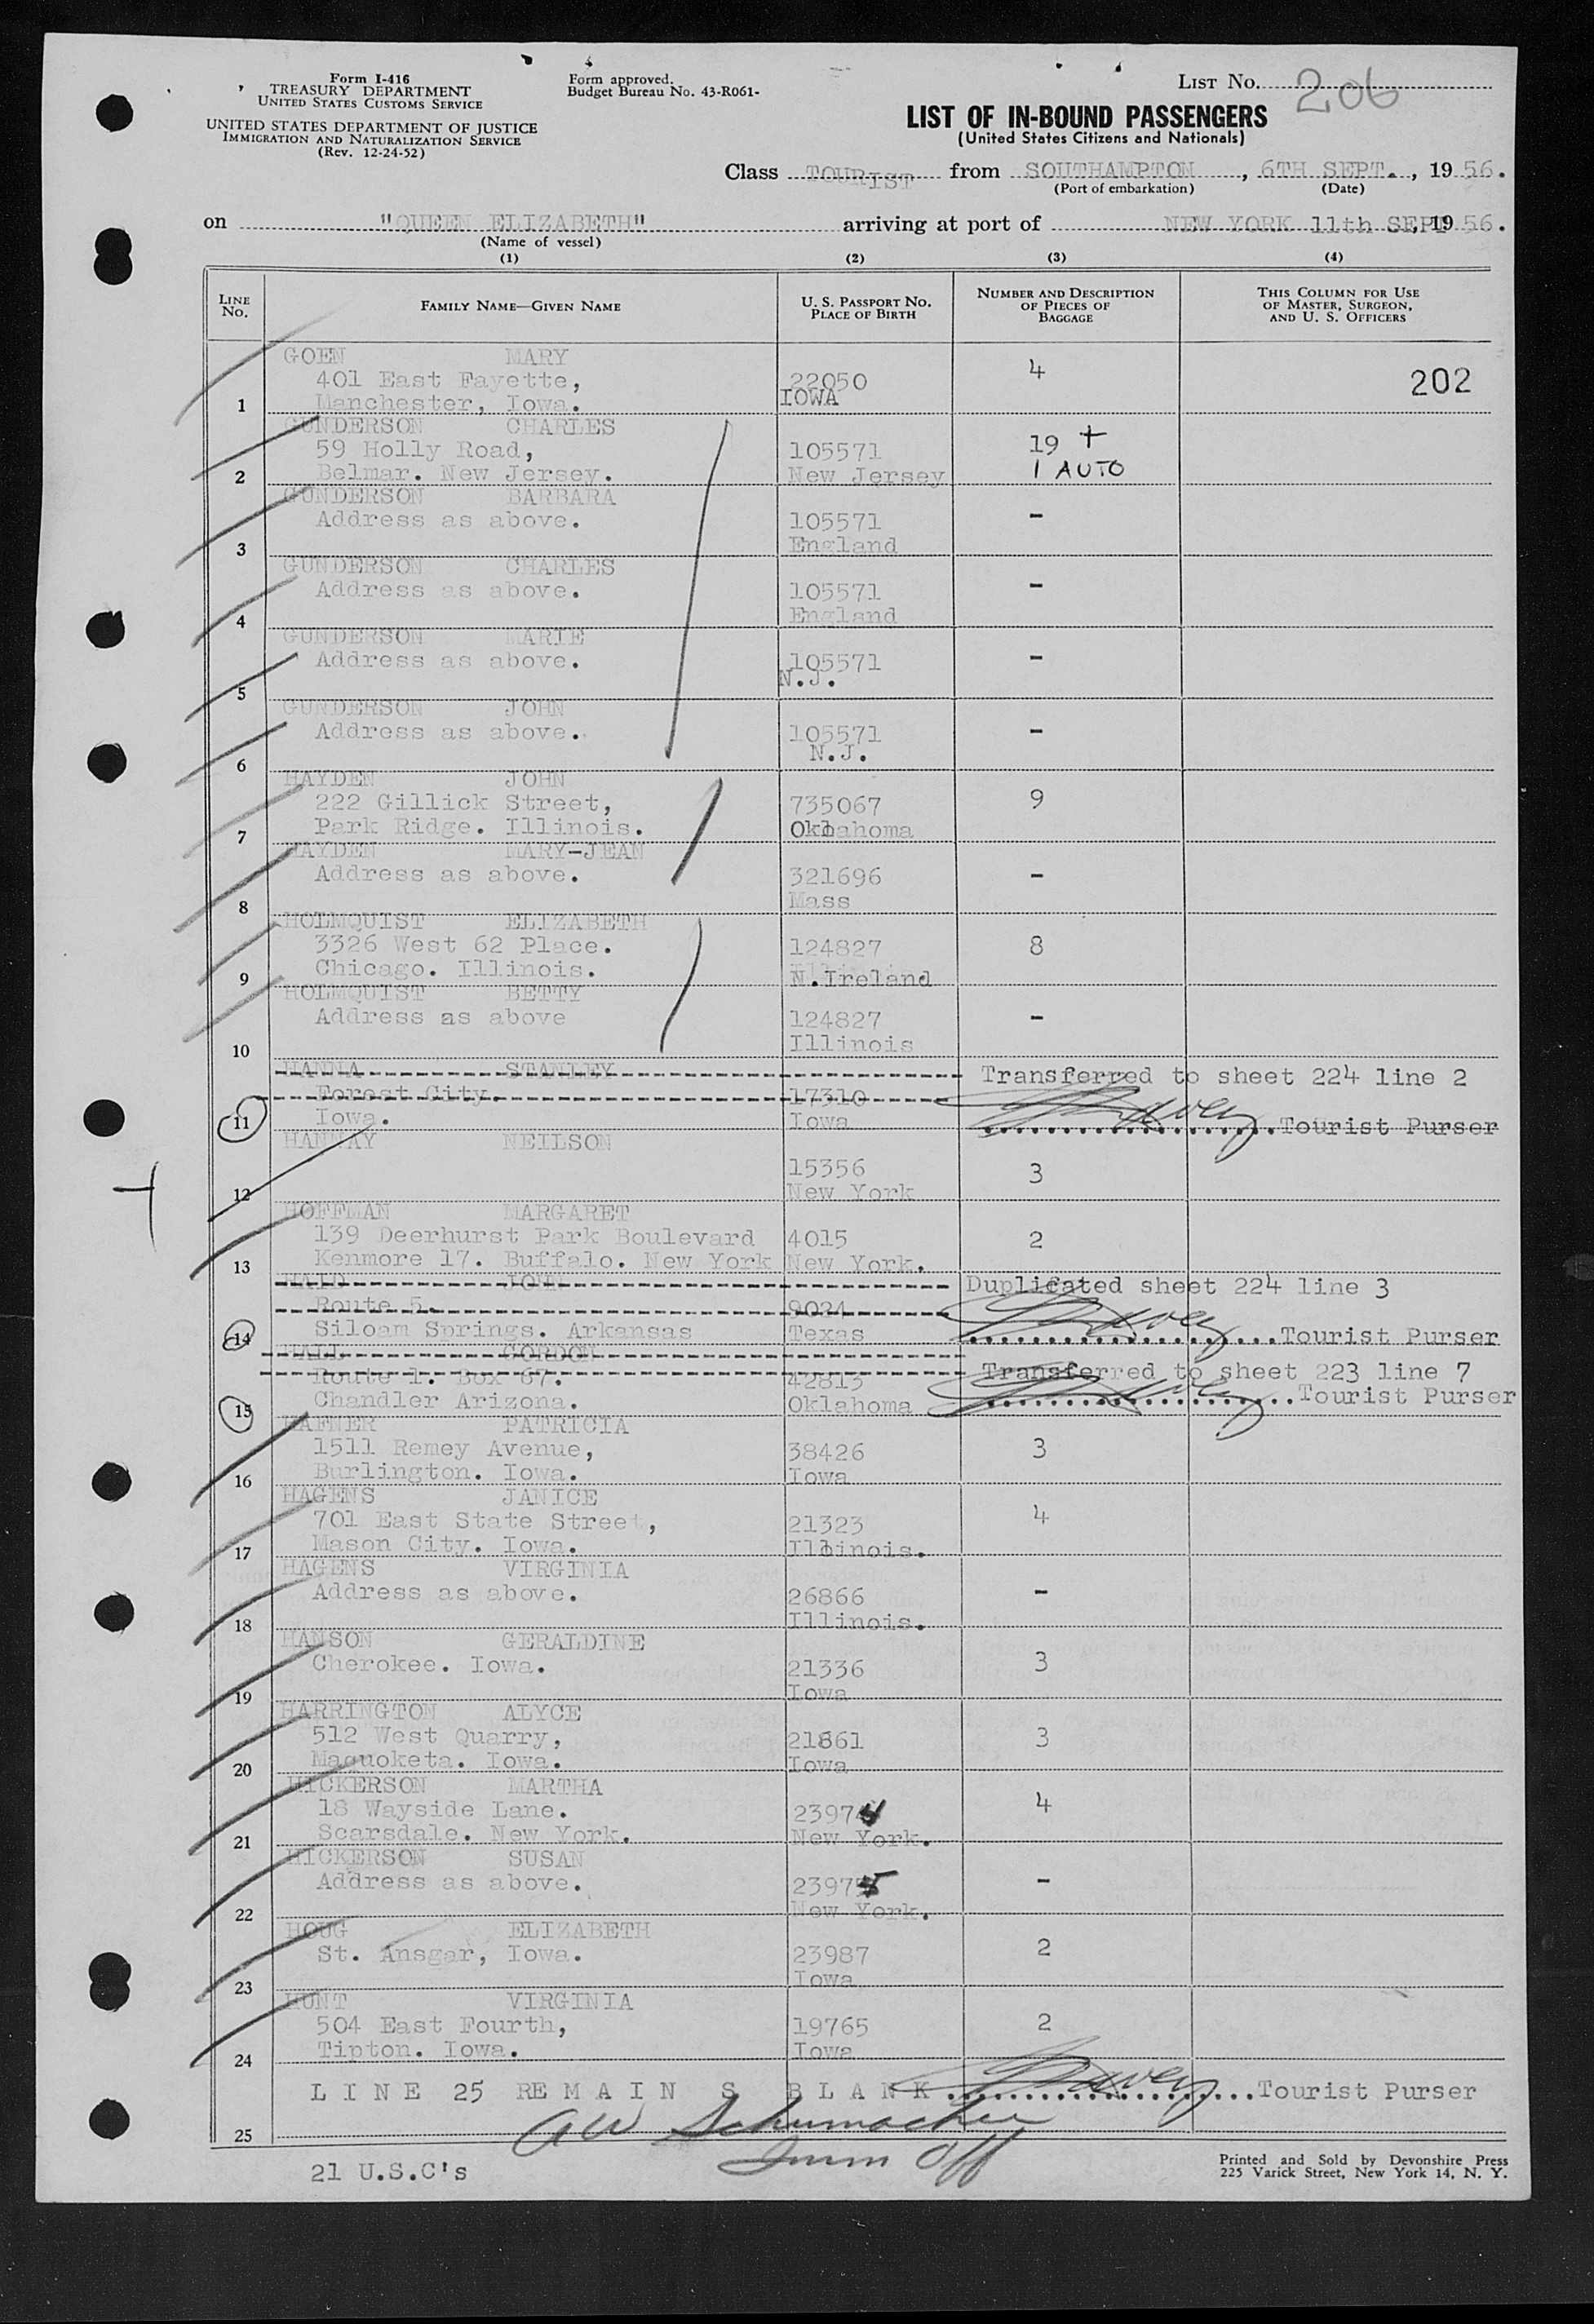 Form I-416
TREASURY DEPARTMENT
UNITED STATES CUSTOMS SERVICE
UNITED STATES DEPARTMENT OF JUSTICE
IMMIGRATION AND NATURALIZATION SERVICE
(Rev. 12-24-52)
Form approved.
Budget Bureau No. 43-R061-
LIST No. 206
LIST OF IN-BOUND PASSENGERS
(United States Citizens and Nationals)
Class TOURIST from SOUTHAMPTON, 6TH SEPT., 1956.
(Port of embarkation) (Date)
on "QUEEN ELIZABETH" arriving at port of NEW YORK 11th SEPT 1956.
(Name of vessel)
(1) (2) (3) (4)
LINE No. FAMILY NAME—GIVEN NAME U. S. PASSPORT NO. PLACE OF BIRTH NUMBER AND DESCRIPTION OF PIECES OF BAGGAGE THIS COLUMN FOR USE OF MASTER, SURGEON, AND U. S. OFFICERS
GOEN MARY 4
401 East Fayette, 22050 202
1 Manchester, Iowa. IOWA
GUNDERSON CHARLES
59 Holly Road, 105571 19 +
2 Belmar. New Jersey. New Jersey 1 AUTO
GUNDERSON BARBARA
Address as above. 105571 -
3 England
GUNDERSON CHARLES
Address as above. 105571 -
4 England
GUNDERSON MARIE
Address as above. 105571 -
5 N.J.
GUNDERSON JOHN
Address as above. 105571 -
6 N.J.
HAYDEN JOHN
222 Gillick Street, 735067 9
7 Park Ridge. Illinois. Oklahoma
HAYDEN MARY-JEAN
Address as above. 321696 -
8 Mass
HOLMQUIST ELIZABETH
3326 West 62 Place. 124827 8
9 Chicago. Illinois. N.Ireland
HOLMQUIST BETTY
Address as above 124827 -
10 Illinois
HANNA STANLEY Transferred to sheet 224 line 2
Forest City. 17310
11 Iowa. Iowa Tourist Purser
HANNAY NEILSON
15356 3
12 New York
HOFFMAN MARGARET
139 Deerhurst Park Boulevard 4015 2
13 Kenmore 17. Buffalo. New York New York.
JOHN Duplicated sheet 224 line 3
Route 5. 9024
14 Siloam Springs. Arkansas Texas Tourist Purser
HALL GORDON
Route 1. Box 67. 42815 Transferred to sheet 223 line 7
15 Chandler Arizona. Oklahoma Tourist Purser
HAFNER PATRICIA
1511 Remey Avenue, 38426 3
16 Burlington. Iowa. Iowa
HAGENS JANICE
701 East State Street, 21323 4
17 Mason City. Iowa. Illinois.
HAGENS VIRGINIA
Address as above. 26866 -
18 Illinois.
HANSON GERALDINE
Cherokee. Iowa. 21336 3
19 Iowa
HARRINGTON ALYCE
512 West Quarry, 21861 3
20 Maquoketa. Iowa. Iowa
HICKERSON MARTHA
18 Wayside Lane. 23974 4
21 Scarsdale. New York. New York.
HICKERSON SUSAN
Address as above. 23975 -
22 New York.
HOUG ELIZABETH
St. Ansgar, Iowa. 23987 2
23 Iowa
HUNT VIRGINIA
504 East Fourth, 19765 2
24 Tipton. Iowa. Iowa
LINE 25 REMAINS BLANK Tourist Purser
25 AW Schumacher
Imm Off
21 U.S.C's
Printed and Sold by Devonshire Press
225 Varick Street, New York 14, N. Y.